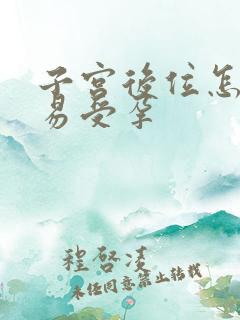 子宫後位怎
易受孕
程啓凌
未经同意禁止转载